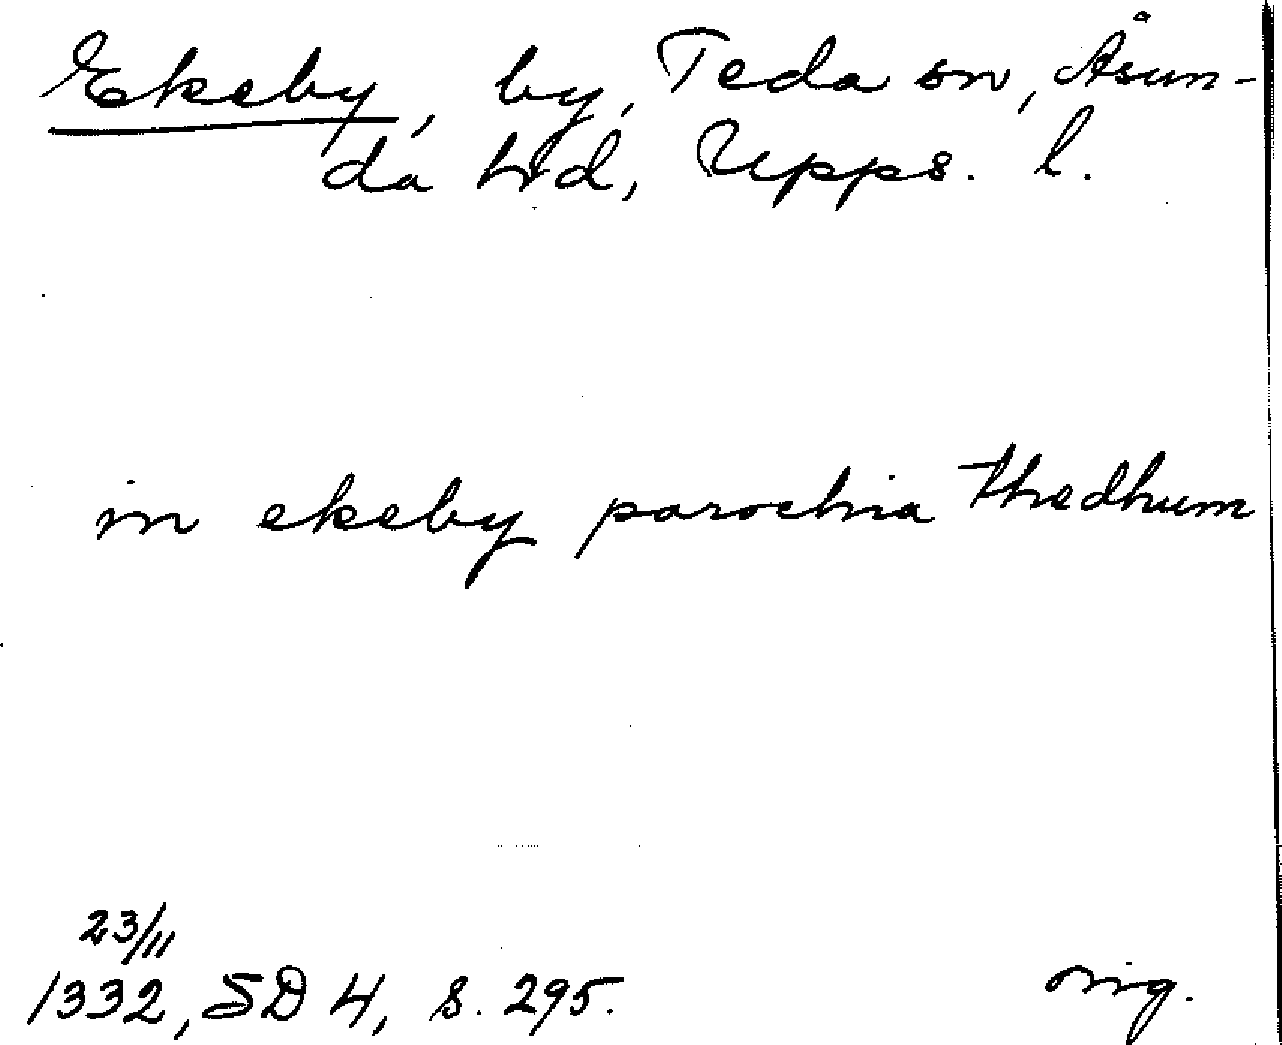 Ekeby, by, Teda sn, Åsun-
da hd, Upps. l.
in ekeby parochia thedhum
23/11
1332, SD 4, s. 295.
orig.